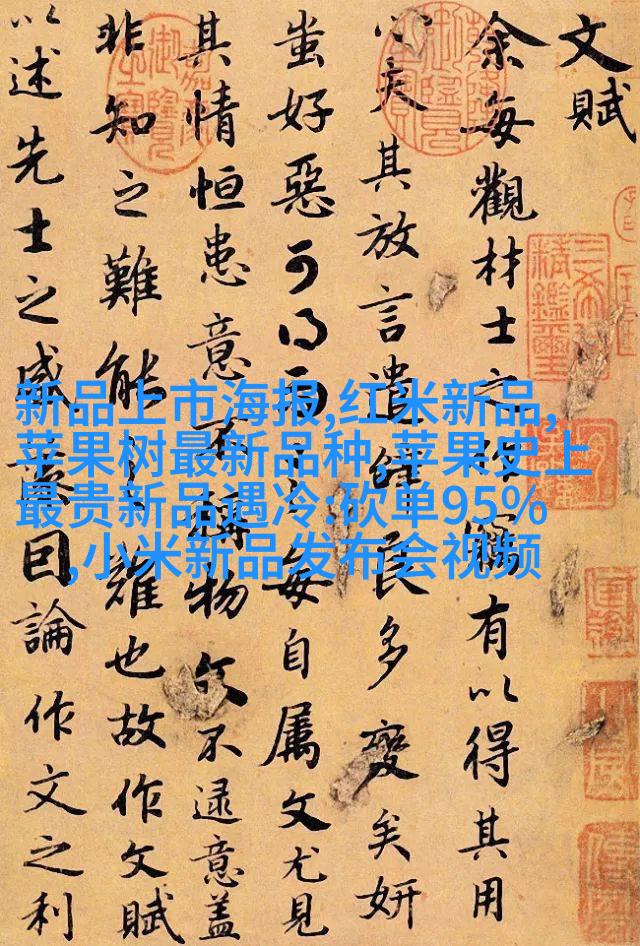 文賦
余每觀材士之作竊有以得其用
心夫其放言遣辭良多變矣妍
蚩好惡可得而言每自屬文尤見
其情恒患意不稱物文不逮意蓋
非知之難能之難也故作文賦
以述先士之盛藻因論作文之利
新品上市海报,红米新品,
苹果树最新品种,苹果史上
最贵新品遇冷:砍单95%
,小米新品发布会视频